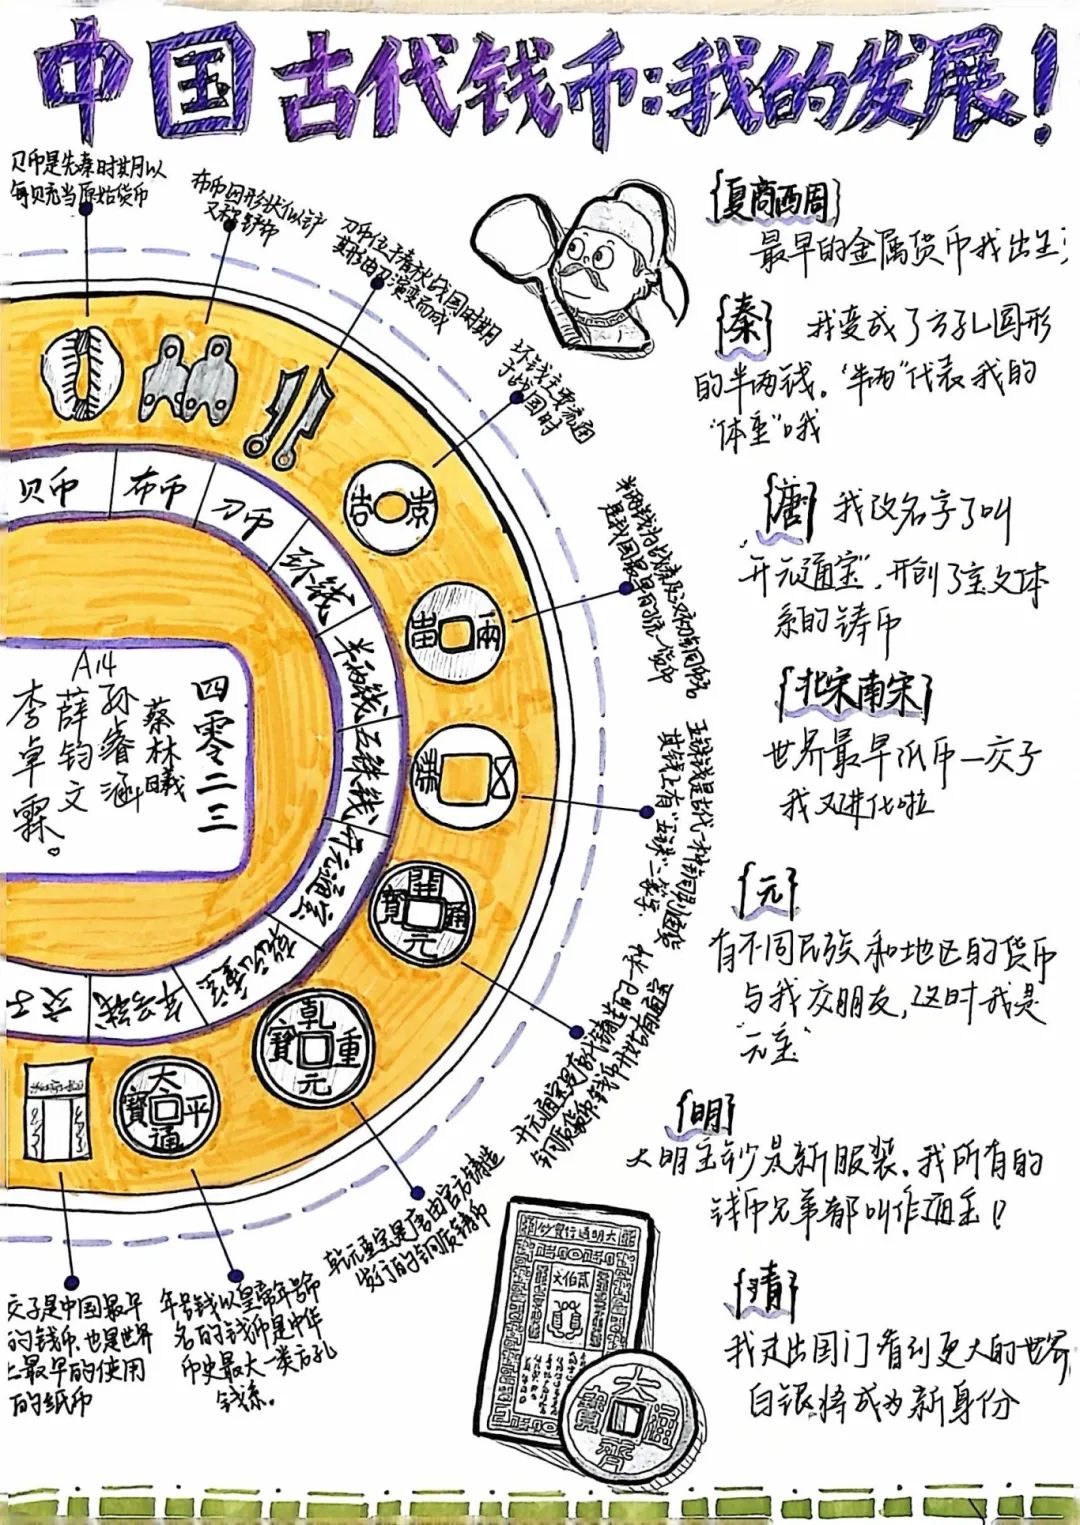 中国古代钱币：我的发展！
贝币是先秦时期以
每贝充当原始货币
布币因形状似铲
又称铲币
刀币位于春秋战国时期
其形由刀演变而成
环钱主要流通
于战国时
是我国最早的统一货币
其钱上有“五铢”二篆字.
乾元重宝是唐由官方铸造
发行的铜质铸币
年号钱以皇帝年号命
名的钱币是中华
币史最大一类方孔
钱系。
交子是中国最早
的钱币.也是世界
上最早的使用
的纸币
贝币
布币
刀币
环钱
半两钱
五铢钱
开元通宝
乾元重宝
年号钱
交子
四零二三
蔡林曦
孙睿涵
A14
薛钧文
李卓霖。
半兩
五銖
開元通寶
乾元重寶
太平通寶
{夏商西周}
最早的金属货币我出生;
{秦} 我变成了方孔圆形
的半两钱.“半两”代表我的
“体重”哦
{唐} 我改名字了叫
“开元通宝”,开创了宝文体
系的铸币
{北宋南宋}
世界最早纸币一交子
我又进化啦
{元}
有不同民族和地区的货币
与我交朋友,这时我是
“元宝”
{明}
大明宝钞是新服装.我所有的
钱币兄弟都叫作通宝!
{清}
我走出国门看到更大的世界
白银将成为新身份
大明通行寶鈔
貳伯文
大齊通寶